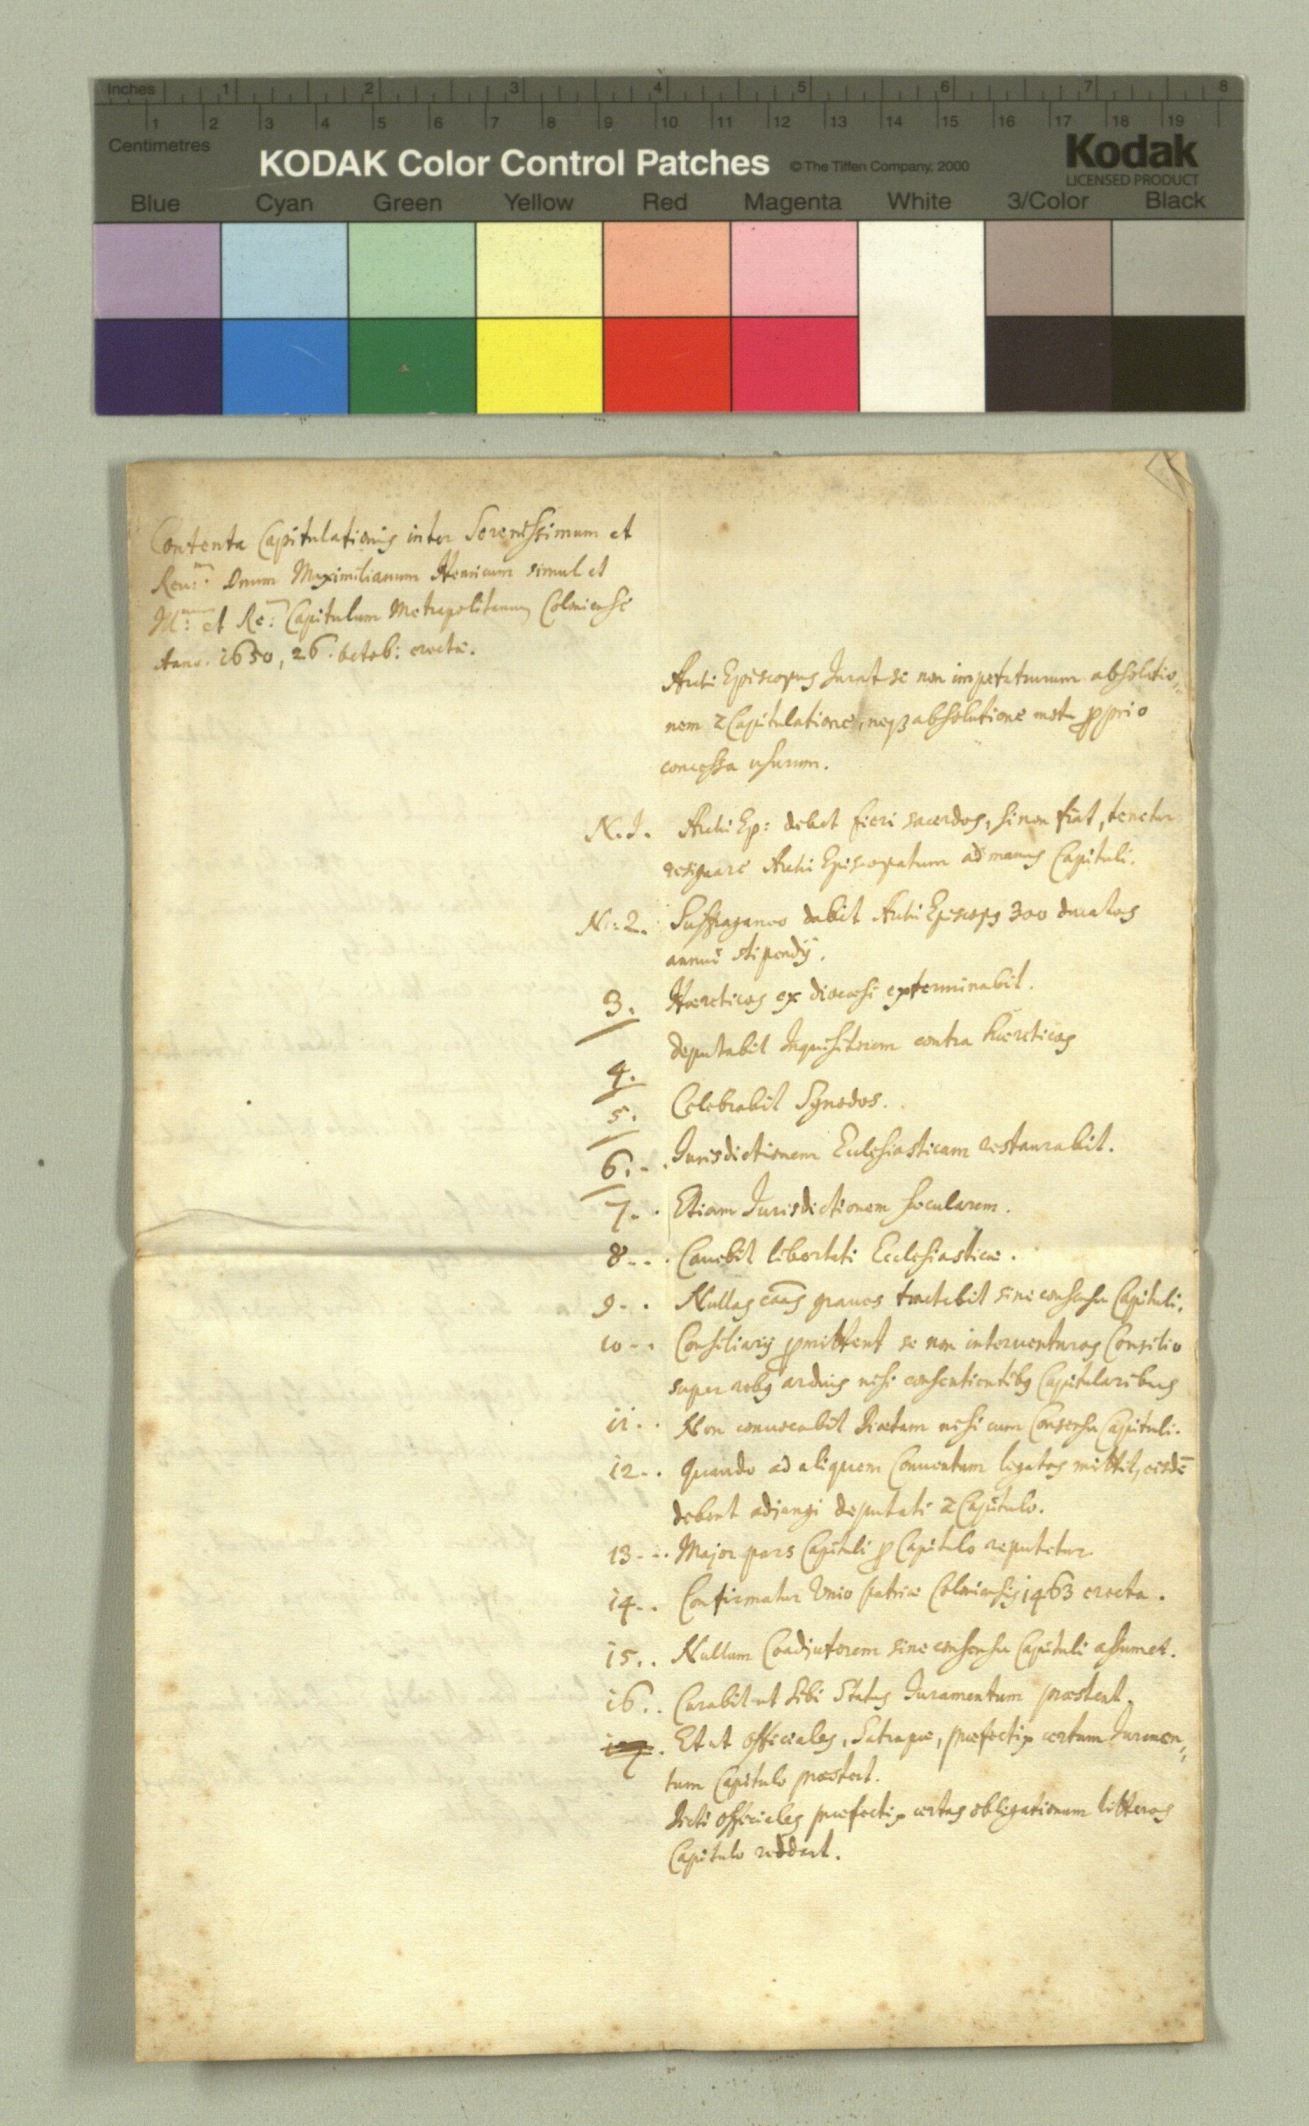 Inches 1 2 3 4 5 6 7 8
1 2 3 4 5 6 7 8 9 10 11 12 13 14 15 16 17 18 19
Centimetres
KODAK Color Control Patches © The Tiffen Company, 2000 Kodak
LICENSED PRODUCT
Blue Cyan Green Yellow Red Magenta White 3/Color Black
Contenta Capitulationis inter Serenissimum et
Reu:m Dnum Maximilianum Henricum simul et
M: et Re: Capitulum Metropolitanum Coloniense
Anno. 1650, 26. Octob: erecta.
Archi Episcopus Jurat se non impetraturum absolutio,,
nem a Capitulatione, neqз absolutione motu proprio
concessa usurum.
N. 1. Archi Ep: debet fieri sacerdos, si non fiat, tenetur
resignare Archi Episcopatum ad manus Capituli.
N: 2. Suffraganeo dabit Archi Episcops 300 ducatos
annui stipendij.
3. Hæreticos ex diocæsi exterminabit.
4. deputabit Inquisitorem contra hæreticos
5. Celebrabit Synodos.
6. Jurisdictionem Ecclesiasticam restaurabit.
7. Etiam Jurisdictionem sæcularem.
8. Cauebit libertati Ecclesiasticæ.
9. Nullas caãs graues tractabit sine consensu Capituli.
10. Consiliarij promittent se non interuenturos Consilio
super rebus arduis nisi consentientibus Capitularibus
11. Non conuocabit Diætam nisi cum Consensu Capituli.
12. Quando ad aliquem Conuentum legatos mittit, eisdē
debent adjungi deputati a Capitulo.
13. Major pars Capituli pro Capitulo reputetur.
14. Confirmatur Unio Patriæ Coloniensis 1463 erecta.
15. Nullum Coadjutorem sine consensu Capituli assumet.
16. Curabit ut sibi Status Juramentum præstent.
Et ut officiales, Satrapæ, præfecti certum Juramen,,
tum Capitulo præstent.
Dicti officiales præfecti certas obligationum litteras
Capitulo reddant.